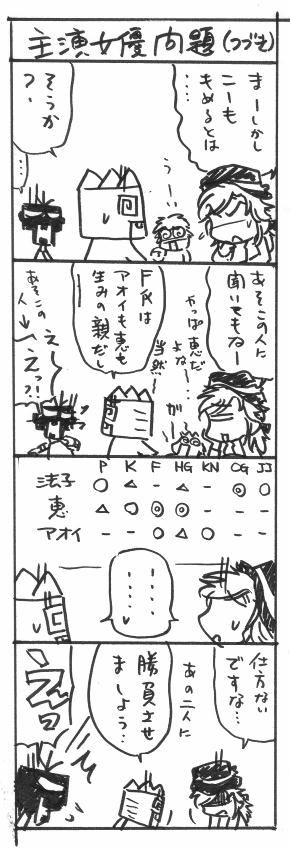 主演女優問題(つづき)
まーしかし
こーも
もめるとは
・・・・
うーい
そうか
?、
・・・
あそこの人に
聞いてもねー
やっぱ恵だ
よなー・・
当然
がー
F氏は
アオイも恵も
生みの親だし
えー
えっ?!
あそこの
人→
P K F HG KN OG JJ
法子 ○ △ － △ － ◎ ○
恵 △ ○ ◎ ◎ － － －
アオイ － － ○ △ ○ － －
・・・・
・・・・
仕方ない
ですな…
あの二人に
勝負させ
ましょう…
えっ